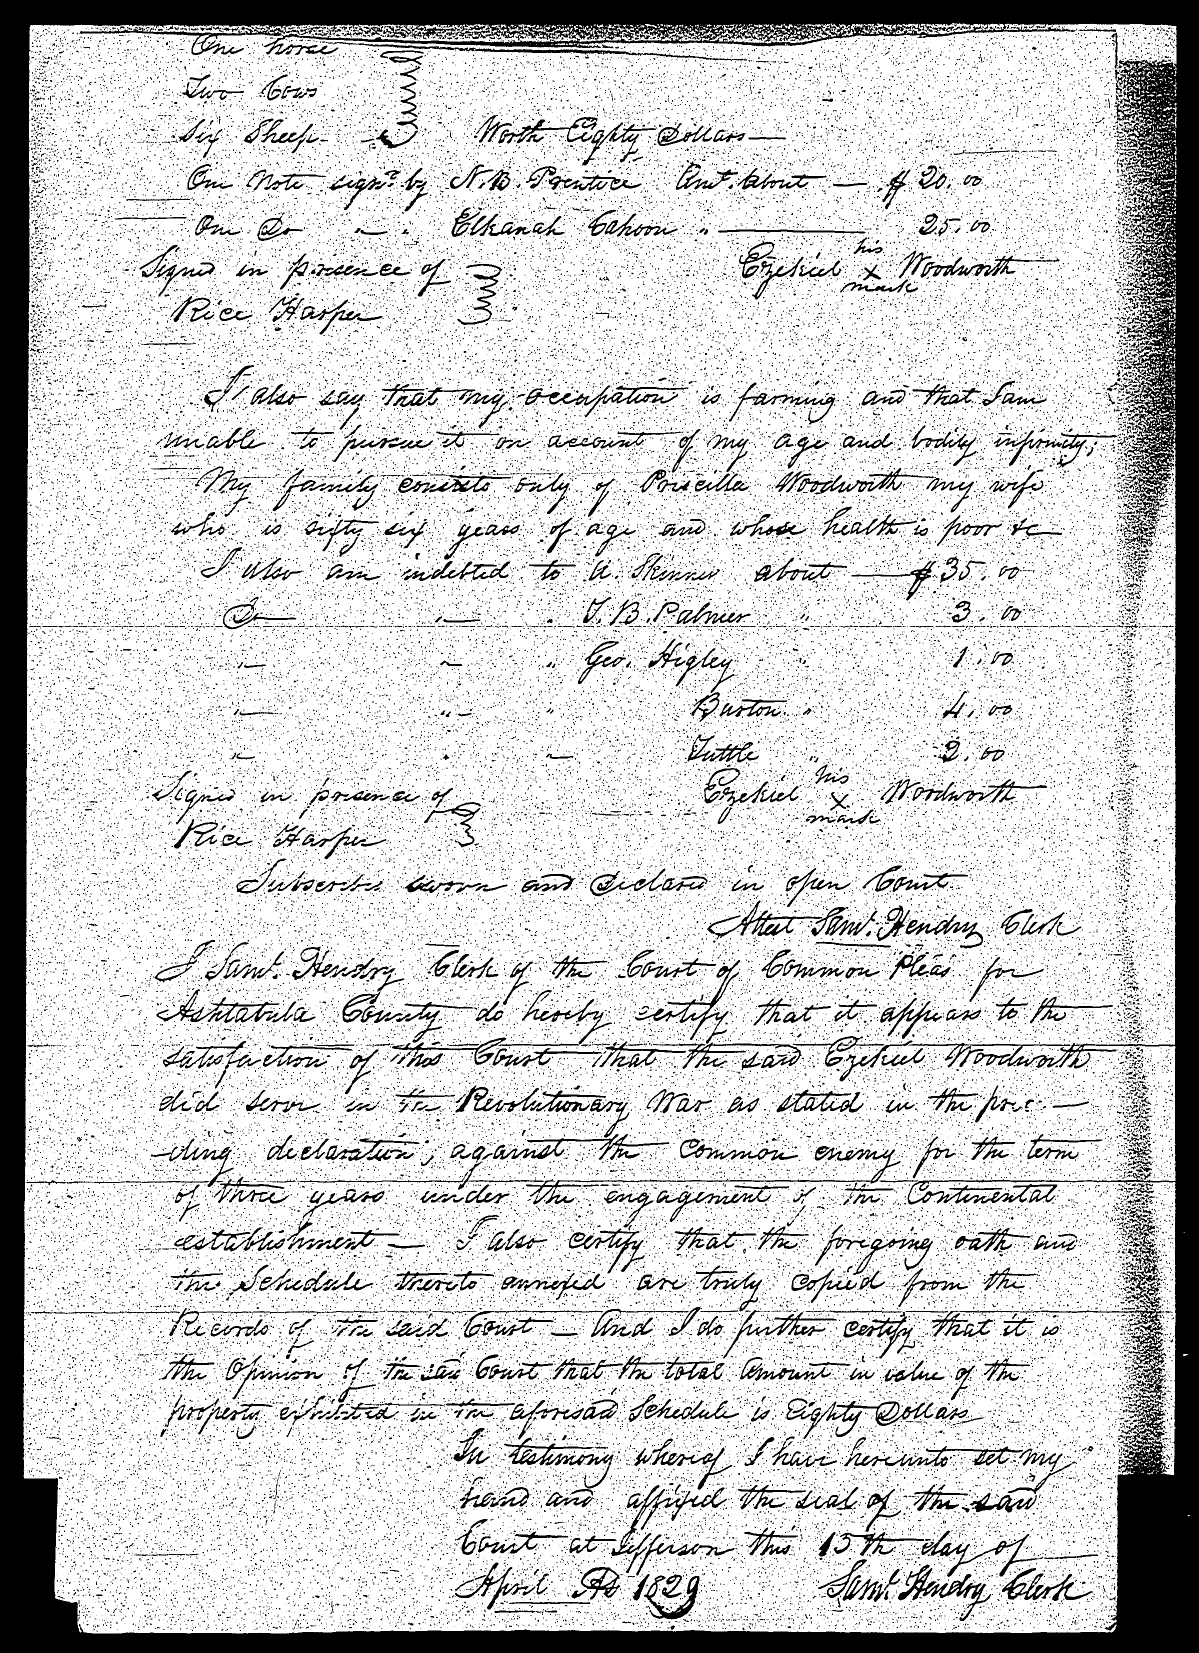 One horse
Two Cows
Six Sheep Worth Eighty Dollars
One Note signd by N.B. Prentice Amt. About — $ 20.00
One Do " " Elkanah Cahoon " — 25.00
Signed in presence of Ezekiel his X mark Woodworth
Rice Harper
I also say that my occupation is farming and that I am
unable to pursue it on account of my age and bodily infirmity;
My family consists only of Priscilla Woodworth my wife
who is sixty six years of age and whose health is poor &c
I also am indebted to A. Skinner about — $ 35.00
Do " " T.B. Palmer " 3.00
" " " Geo. Higley " 1.00
" " " Burton " 4.00
" " " Tuttle " 2.00
Signed in presence of Ezekiel his X mark Woodworth
Rice Harper
Subscribed sworn and Declared in open Court
Attest Saml. Hendry Clerk
I Saml. Hendry Clerk of the Court of Common Pleas for
Ashtabula County do hereby certify that it appears to the
satisfaction of this Court that the said Ezekiel Woodworth
did serve in the Revolutionary War as stated in the prec —
-ding declaration; against the Common enemy for the term
of three years under the engagement of the Continental
establishment — I also certify that the foregoing oath and
the Schedule thereto annexed are truly copied from the
Records of the said Court — And I do further certify that it is
the Opinion of the said Court that the total Amount in value of the
property exhibited in the aforesaid Schedule is Eighty Dollars
In testimony whereof I have hereunto set my
hand and affixed the seal of the said
Court at Jefferson this 15th day of
April AD 1829 Saml. Hendry Clerk